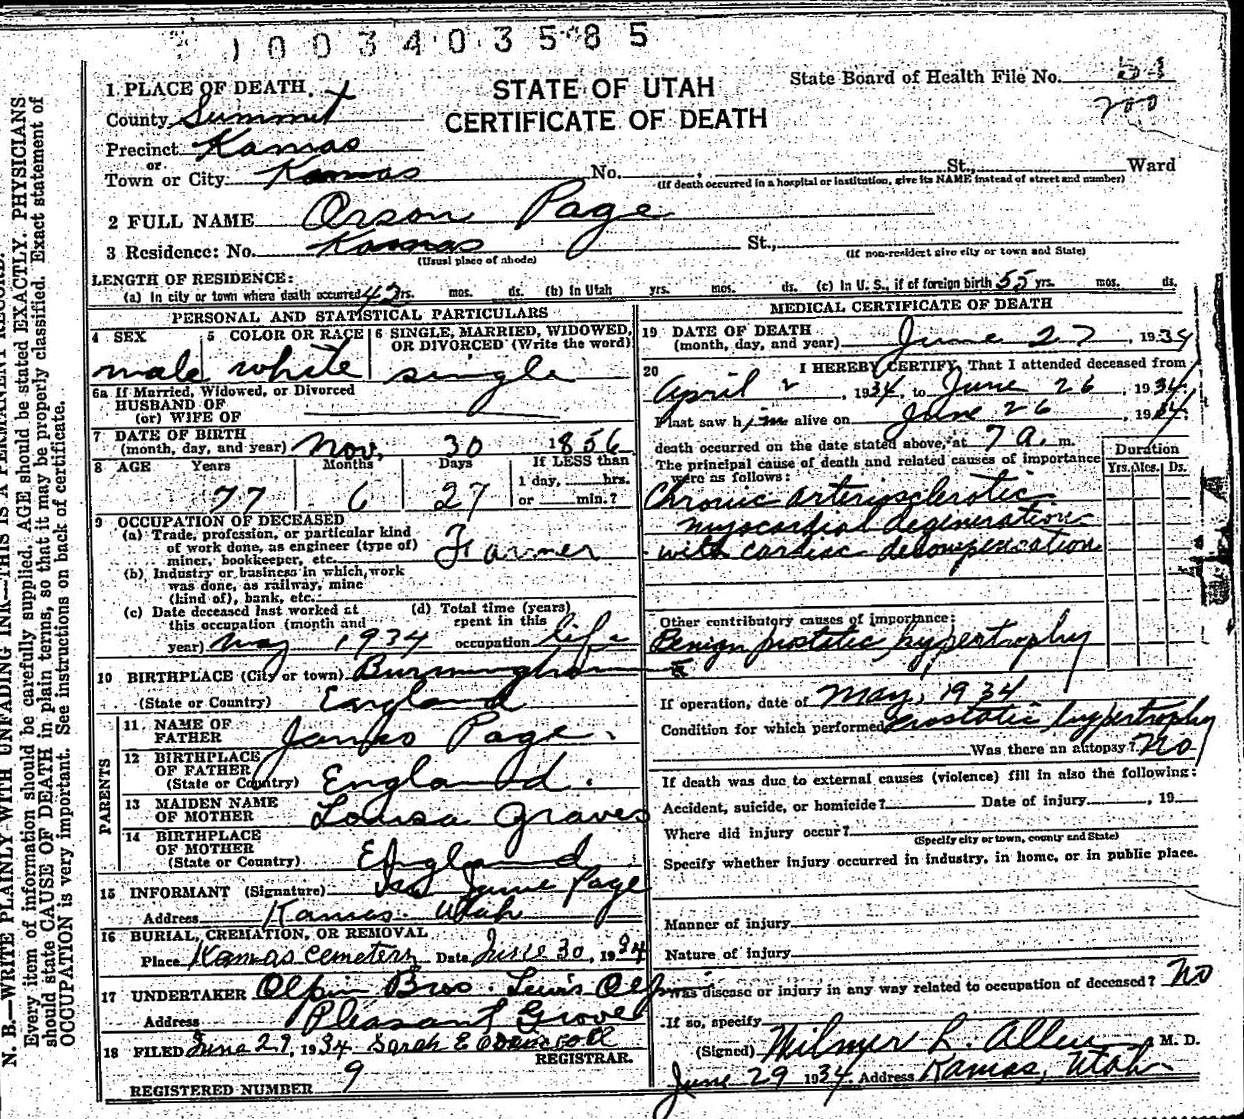 1003403585
STATE OF UTAH
CERTIFICATE OF DEATH
State Board of Health File No. 51
200
1 PLACE OF DEATH.
County Summit
Precinct Kamas
or
Town or City Kamas No. St., Ward
(If death occurred in a hospital or institution, give its NAME instead of street and number)
2 FULL NAME Orson Page
3 Residence: No. Kamas St.,
(Usual place of abode) (If non-resident give city or town and State)
LENGTH OF RESIDENCE:
(a) In city or town where death occurred 42 yrs. mos. ds. (b) In Utah yrs. mos. ds. (c) In U. S., if of foreign birth 55 yrs. mos. ds.
PERSONAL AND STATISTICAL PARTICULARS
4 SEX male
5 COLOR OR RACE white
6 SINGLE, MARRIED, WIDOWED, OR DIVORCED (Write the word) single
6a If Married, Widowed, or Divorced
HUSBAND OF
(or) WIFE OF
7 DATE OF BIRTH
(month, day, and year) Nov. 30 1856
8 AGE Years Months Days If LESS than
1 day, hrs.
77 6 27 or min.?
9 OCCUPATION OF DECEASED
(a) Trade, profession, or particular kind
of work done, as engineer (type of)
miner, bookkeeper, etc. Farmer
(b) Industry or business in which work
was done, as railway, mine
(kind of), bank, etc.
(c) Date deceased last worked at
this occupation (month and
year) May 1934
(d) Total time (years)
spent in this
occupation life
10 BIRTHPLACE (City or town) Burmingham
(State or Country) England
PARENTS
11 NAME OF
FATHER James Page.
12 BIRTHPLACE
OF FATHER
(State or Country) England.
13 MAIDEN NAME
OF MOTHER Louisa Graves
14 BIRTHPLACE
OF MOTHER
(State or Country) England
15 INFORMANT (Signature) Page
Address Kamas Utah
16 BURIAL, CREMATION, OR REMOVAL
Place Kamas Cemetery Date June 30, 1934
17 UNDERTAKER Olpin Bros. Lewis Olpin
Address Pleasant Grove
18 FILED June 29, 1934 Sarah E
REGISTRAR.
REGISTERED NUMBER 9
MEDICAL CERTIFICATE OF DEATH
19 DATE OF DEATH
(month, day, and year) June 27, 1934
20 I HEREBY CERTIFY, That I attended deceased from
April 2, 1934, to June 26, 1934
I last saw him alive on June 26, 1934
death occurred on the date stated above, at 7 a. m.
The principal cause of death and related causes of importance
were as follows:
Duration
Yrs. Mos. Ds.
Chronic arteriosclerotic
myocardial degeneration
with cardiac decompensation
Other contributory causes of importance:
Benign prostatic hypertrophy
If operation, date of May, 1934
Condition for which performed prostatic hypertrophy
Was there an autopsy? No
If death was due to external causes (violence) fill in also the following:
Accident, suicide, or homicide? Date of injury , 19
Where did injury occur?
(Specify city or town, county and State)
Specify whether injury occurred in industry, in home, or in public place.
Manner of injury
Nature of injury
Was disease or injury in any way related to occupation of deceased? No
If so, specify
(Signed) Wilmer L. Allen M. D.
June 29 1934 Address Kamas, Utah
N. B.—WRITE PLAINLY WITH UNFADING INK—THIS IS A PERMANENT RECORD.
Every item of information should be carefully supplied. AGE should be stated EXACTLY. PHYSICIANS
should state CAUSE OF DEATH in plain terms, so that it may be properly classified. Exact statement of
OCCUPATION is very important. See instructions on back of certificate.